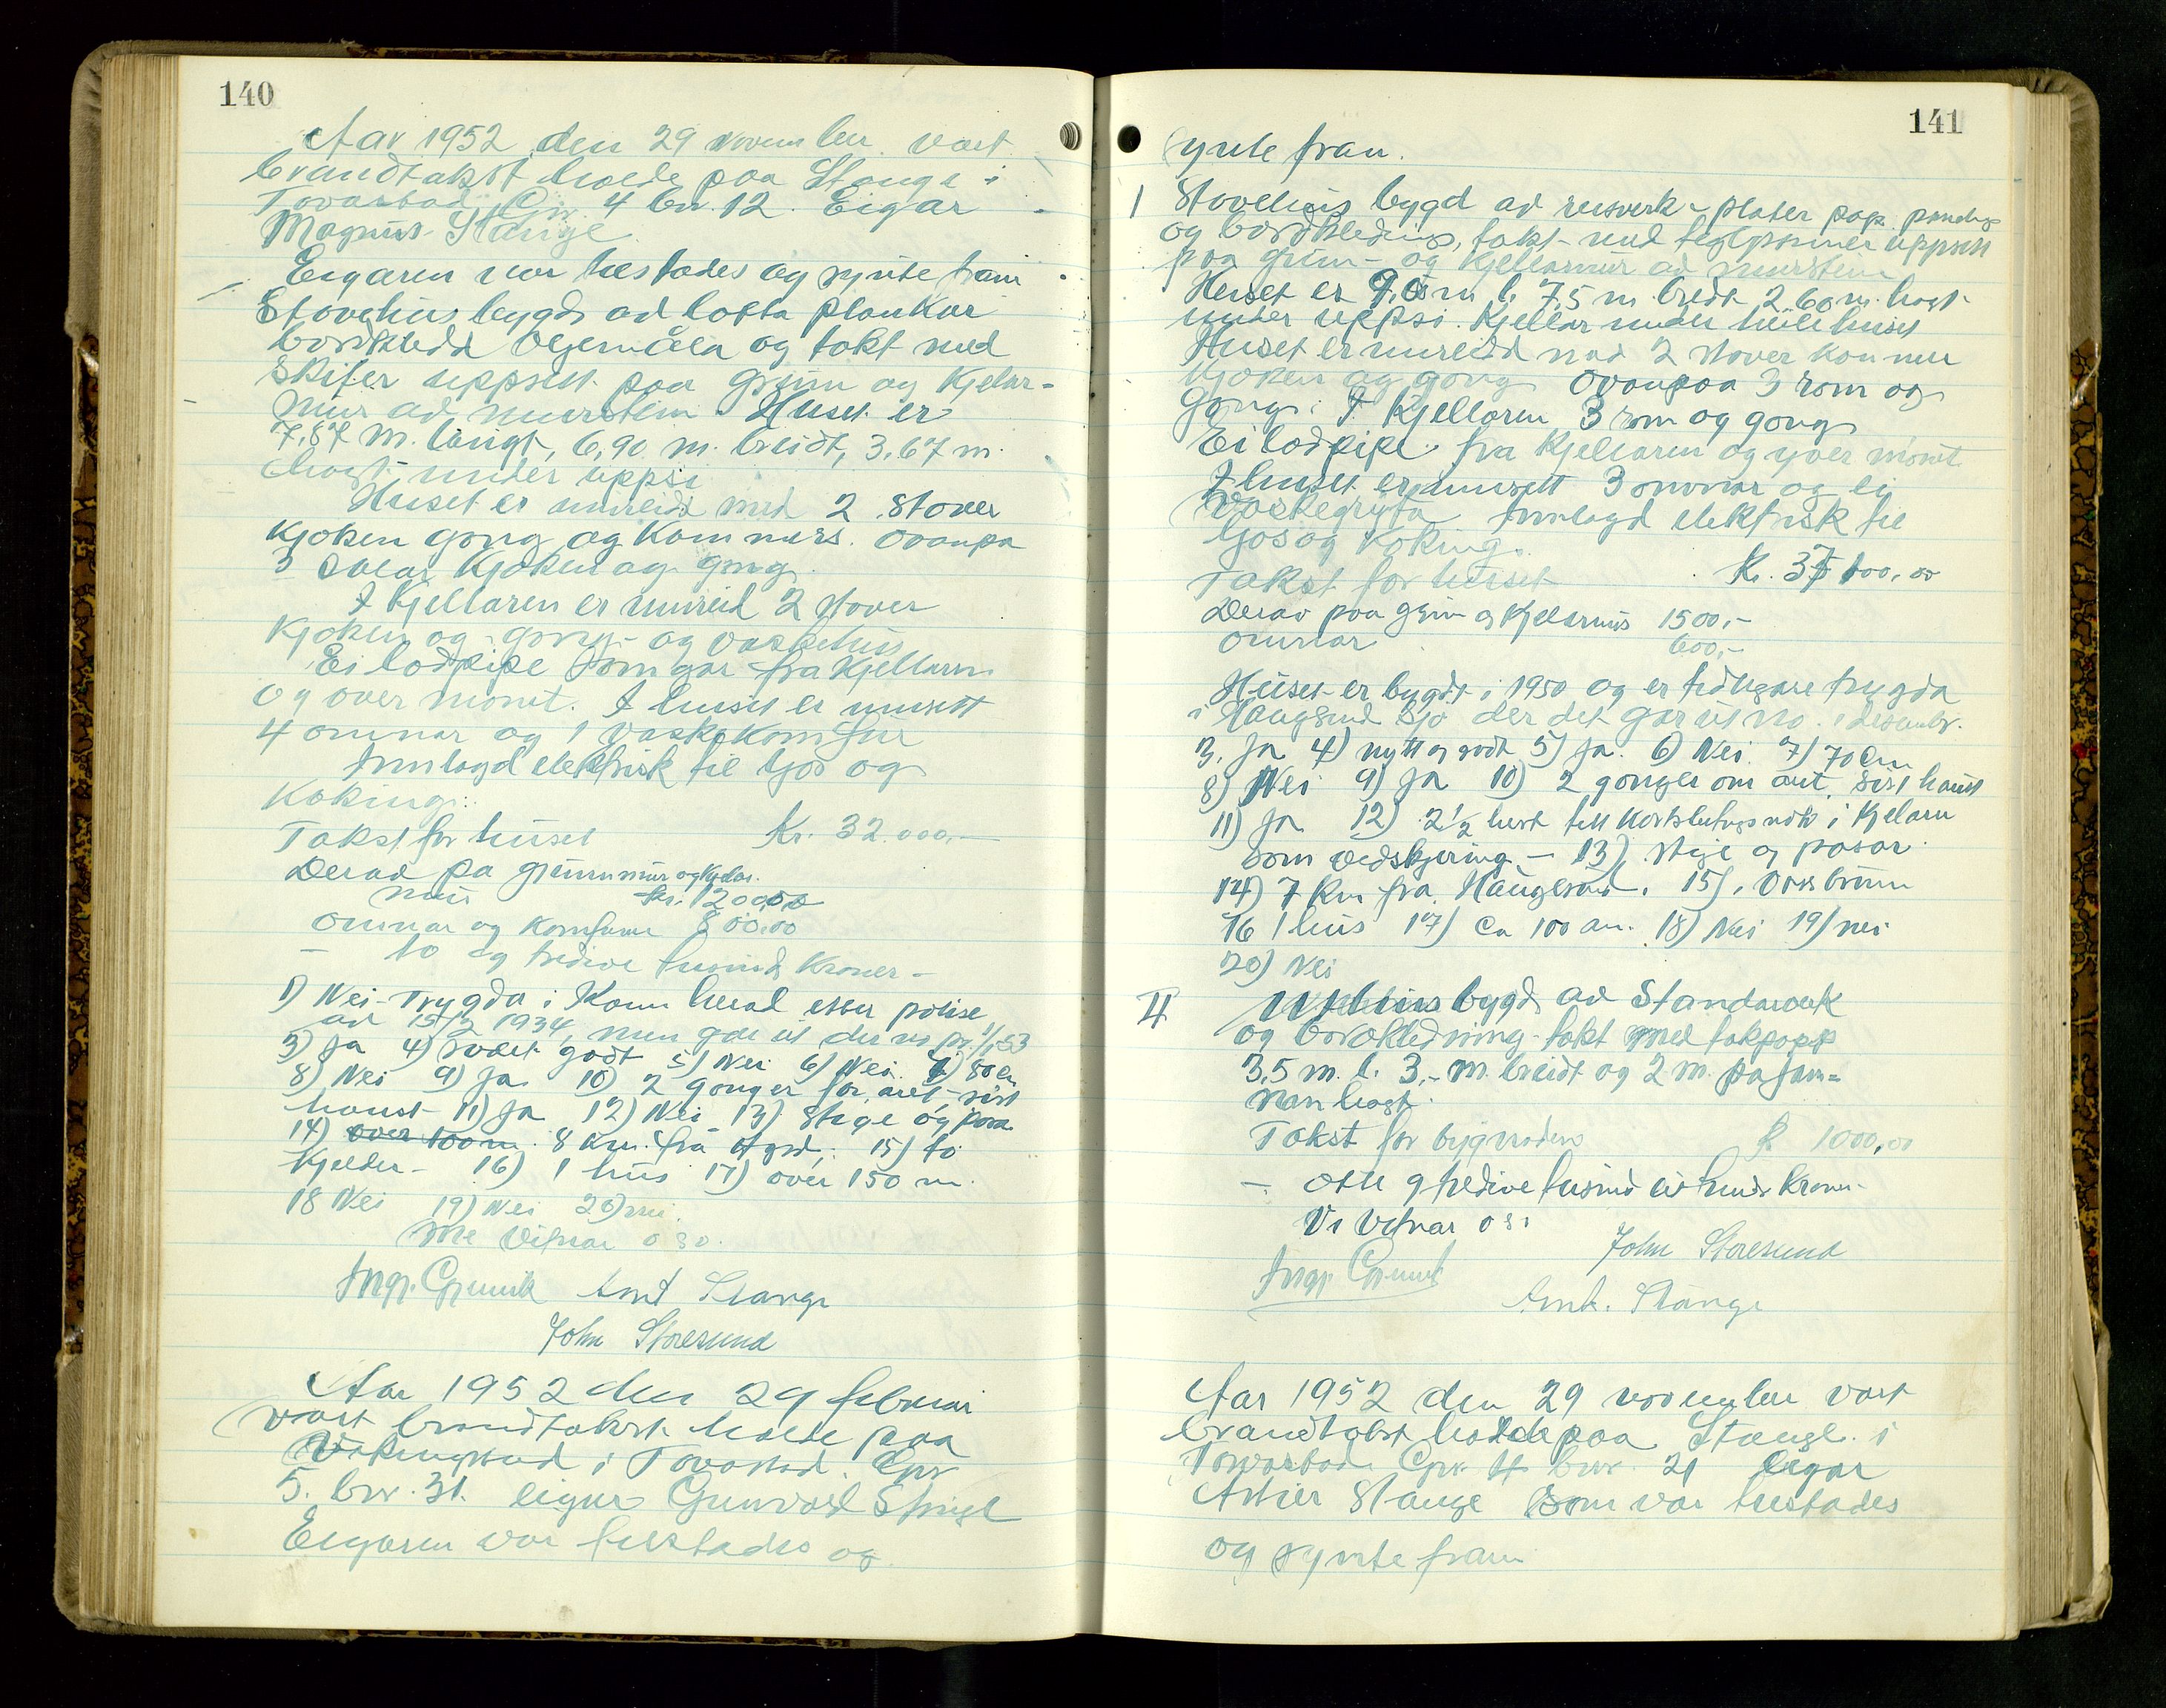 140
Aar 1952 den 29 November vart
brandtakst halde paa Stange i
Torvastad Gn. 4 bn. 12. Eigar
Magnus Stange
Eigaren var tilstades og synte fram
Stovehus bygd ad lafta plankar
bordkledd oljemåla og tekt med
Skifer uppsett paa grun og Kjelar-
mur ad murstein. Huset er
7,87 m. langt, 6,90 m. breidt, 3,67 m.
høgt under uppsi
Huset er innreidd med 2 stover
Kjøken gong og Kammers. Ovanpa
3 Kjøken og gong.
I Kjellaren er innreid 2 stover
Kjøken og gong og vaskehus
Ei lodpipe som gar fra Kjellaren
og over mønet. I huset er innsett
4 omnar og 1 vaskekomfur
Innlagd elektrisk til ljos og
Koking.
Takst for huset Kr. 32.000,-
Derad pa grunnmur og Kjelar.
mur kr. 1200,00
Omnar og Komfurar 800,00
- to og tredive tusind Kroner -
1) Nei - Trygda i Komm. etter polise
ad 15/2 1934, men gar ut der no pr. 1/1-53
3) Ja 4) godt 5) Nei 6) Nei 7) 80 cm
8) Nei 9) Ja 10) 2 gonger for aret, sist
haust 11) Ja 12) Nei 13) Stige og posa
14) over 100 m. 8 Km. fra Hgsd. 15) to
Kjelder - 16) 1 hus 17) over 150 m.
18 Nei 19) Nei 20) nei.
Me Vitnar o s o.
Ingv. Gjervik Arnt Stange
John Storesund
Aar 1952 den 29 februar
vart brandtakst halde paa
Vikingstad i Torvastad. Gnr
5. bnr. 31. eigar Gunvald Stange
Eigaren var tilstades og
141
synte fram.
1 Stovehus bygd ad reisverk - plater pap.
og bordkledning, tekt med teglpanner uppsett
paa grun- og Kjellarmur ad murstein
Huset er 9,0 m l. 7,5 m. breidt 2,60 m. høgt
under uppsi. Kjellar under heile huset
Huset er innreidd med 2 stover kammer
Kjøken og gong Ovanpaa 3 rom og
gong. I Kjellaren 3 rom og gong
Ei lodpipe fra Kjellaren og yver mønet
I huset er innsett 3 omnar og ei
Vaskegryta Innlagd elektrisk til
ljos og Koking.
Takst for huset Kr. 37 100,00
Derav paa grun og Kjellarmur 1500,-
omnar 600,-
Huset er bygdt i 1950 og er tidlegare trygda
i Haugesund Sjø der det gar ut no i desembr.
3. Ja 4) nytt og godt 5) Ja. 6) Nei 7) 70 cm
8) Nei 9) Ja 10) 2 gonger om aret. Sist haust
11) Ja 12) 2 1/2 hest i Kjelaren
som vedskjering - 13) Stige og posar
14) 7 km fra Haugesund. 15)
16 1 hus 17) Ca 100 m. 18) Nei 19) nei
20) Nei
II Uthus bygd ad Standarverk
og bordkledning tekt med takpapp
3,5 m. l. 3,- m. breidt og 2 m. pa jam=
nan høgt.
Takst for bygnaden kr 1000,00
- otte og tredive tusind eit hundr Kroner -
Vi Vitnar o s o
Ingv. Gjervik John Storesund
Arnt. Stange
Aar 1952 den 29 november vart
brandtakst halde paa Stange i
Torvastad Gnr. 4 bnr. 21 Eigar
Stange som var tilstades
og synte fram